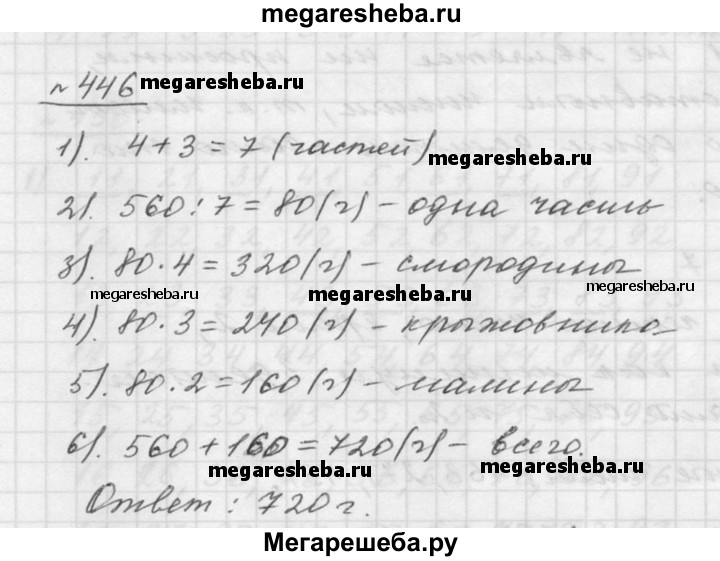 megaresheba.ru
№ 446 megaresheba.ru
1). 4 + 3 = 7 (частей) megaresheba.ru
2). 560 : 7 = 80 (г) - одна часть
3). 80 · 4 = 320 (г) - смородины
megaresheba.ru megaresheba.ru megaresheba.ru
4). 80 · 3 = 240 (г) - крыжовника
5). 80 · 2 = 160 (г) - малины
6). 560 + 160 = 720 (г) - всего.
megaresheba.ru megaresheba.ru
Ответ : 720 г.
Мегарешеба.ру